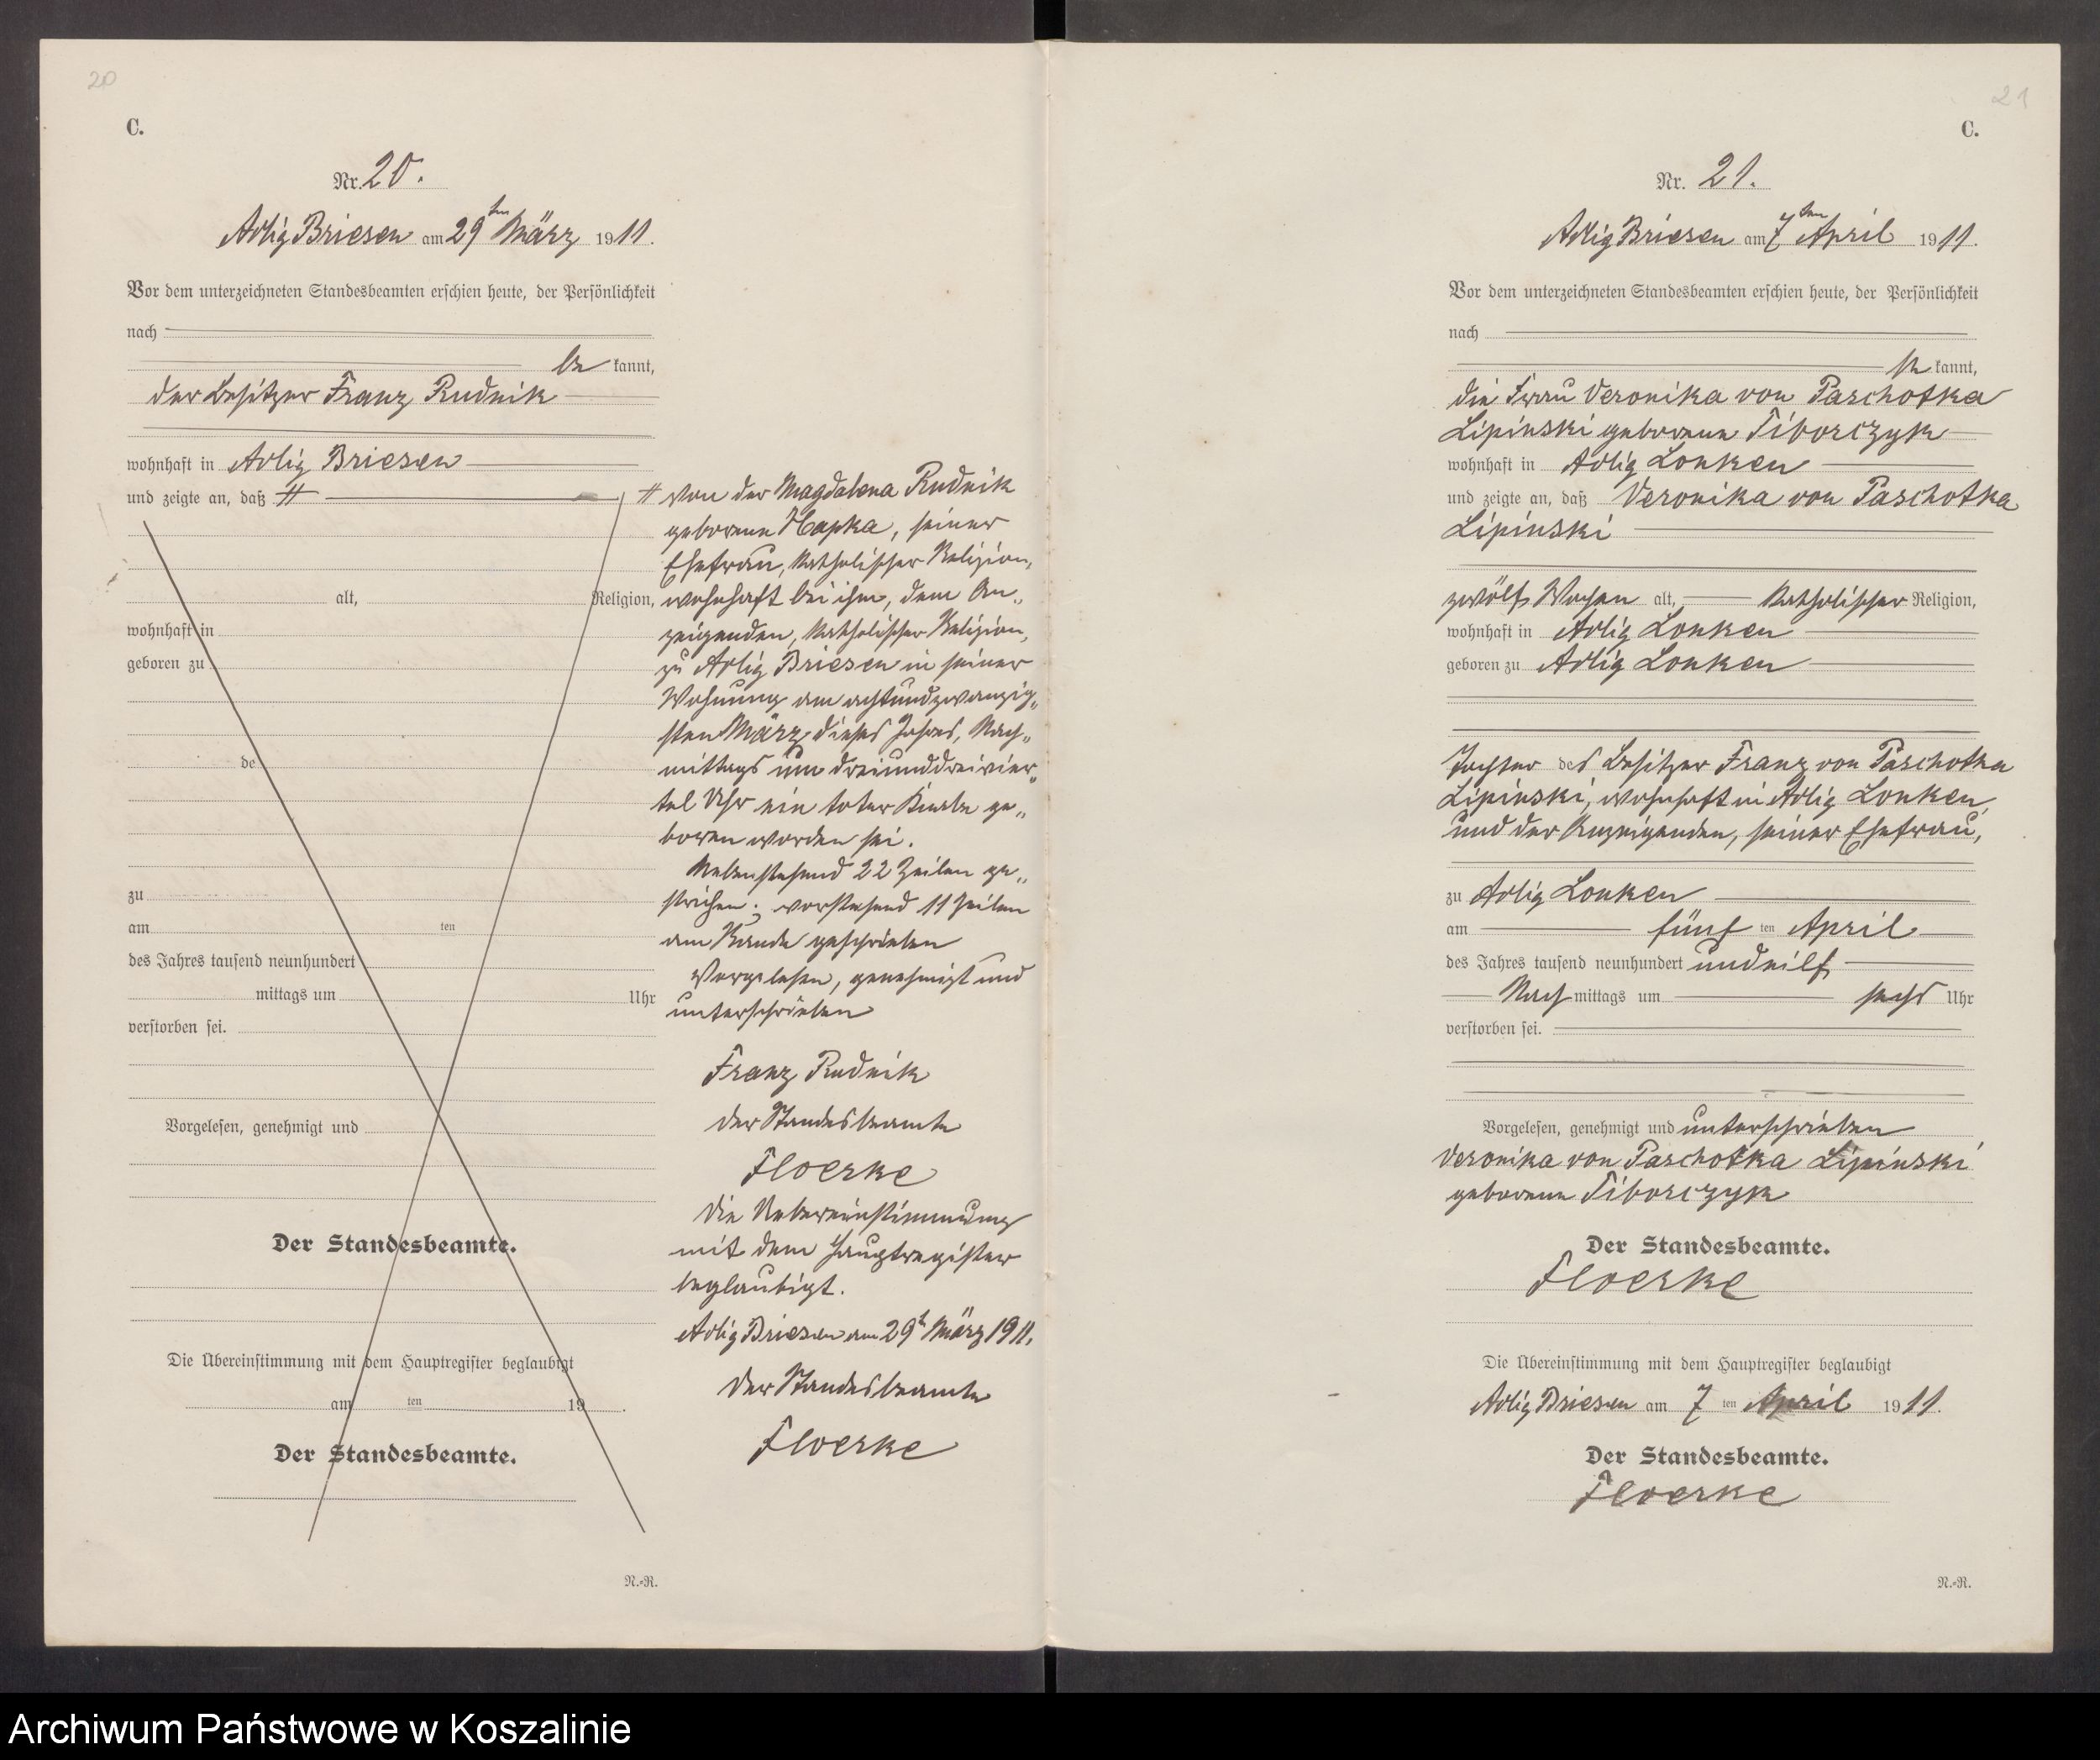 20
C.
Nr. 20.
Adlig Briesen am 29ten März 1911.
Vor dem unterzeichneten Standesbeamten erschien heute, der Persönlichkeit
nach
be kannt,
der Besitzer Franz Rudnik
wohnhaft in Adlig Briesen
und zeigte an, daß #
alt, Religion,
wohnhaft in
geboren zu
de
zu
am ten
des Jahres tausend neunhundert
mittags um Uhr
verstorben sei.
Vorgelesen, genehmigt und
Der Standesbeamte.
Die Übereinstimmung mit dem Hauptregister beglaubigt
am ten 19 .
Der Standesbeamte.
N.-R.
# von der Magdalena Rudnik
geborene Hapka, seiner
Ehefrau, katholischer Religion,
wohnhaft bei ihm, dem An„
zeigenden, katholischer Religion,
zu Adlig Briesen in seiner
Wohnung am achtundzwanzig„
sten März dieses Jahres, Nach„
mittags um dreiunddreivier„
tel Uhr ein toter Knabe ge„
boren worden sei.
Nebenstehend 22 Zeilen ge„
strichen; vorstehend 11 Zeilen
am Rande geschrieben
Vorgelesen, genehmigt und
unterschrieben
Franz Rudnik
Der Standesbeamte
Floerke
Die Uebereinstimmung
mit dem Hauptregister
beglaubigt.
Adlig Briesen am 29t März 1911.
Der Standesbeamte
Floerke
21
C.
Nr. 21.
Adlig Briesen am 7ten April 1911.
Vor dem unterzeichneten Standesbeamten erschien heute, der Persönlichkeit
nach
be kannt,
die Frau Veronika von Paschotka
Lipinski geborene Tiborczyk
wohnhaft in Adlig Lonken
und zeigte an, daß Veronika von Paschotka
Lipinski
zwölf Wochen alt, katholischer Religion,
wohnhaft in Adlig Lonken
geboren zu Adlig Lonken
Tochter des Besitzer Franz von Paschotka
Lipinski, wohnhaft in Adlig Lonken,
und der Anzeigenden, seiner Ehefrau,
zu Adlig Lonken
am fünf ten April
des Jahres tausend neunhundert undeilf
Nach mittags um sechs Uhr
verstorben sei.
Vorgelesen, genehmigt und unterschrieben
Veronika von Paschotka Lipinski
geborene Tiborczyk
Der Standesbeamte.
Floerke
Die Übereinstimmung mit dem Hauptregister beglaubigt
Adlig Briesen am 7 ten April 1911.
Der Standesbeamte.
Floerke
N.-R.
Archiwum Państwowe w Koszalinie